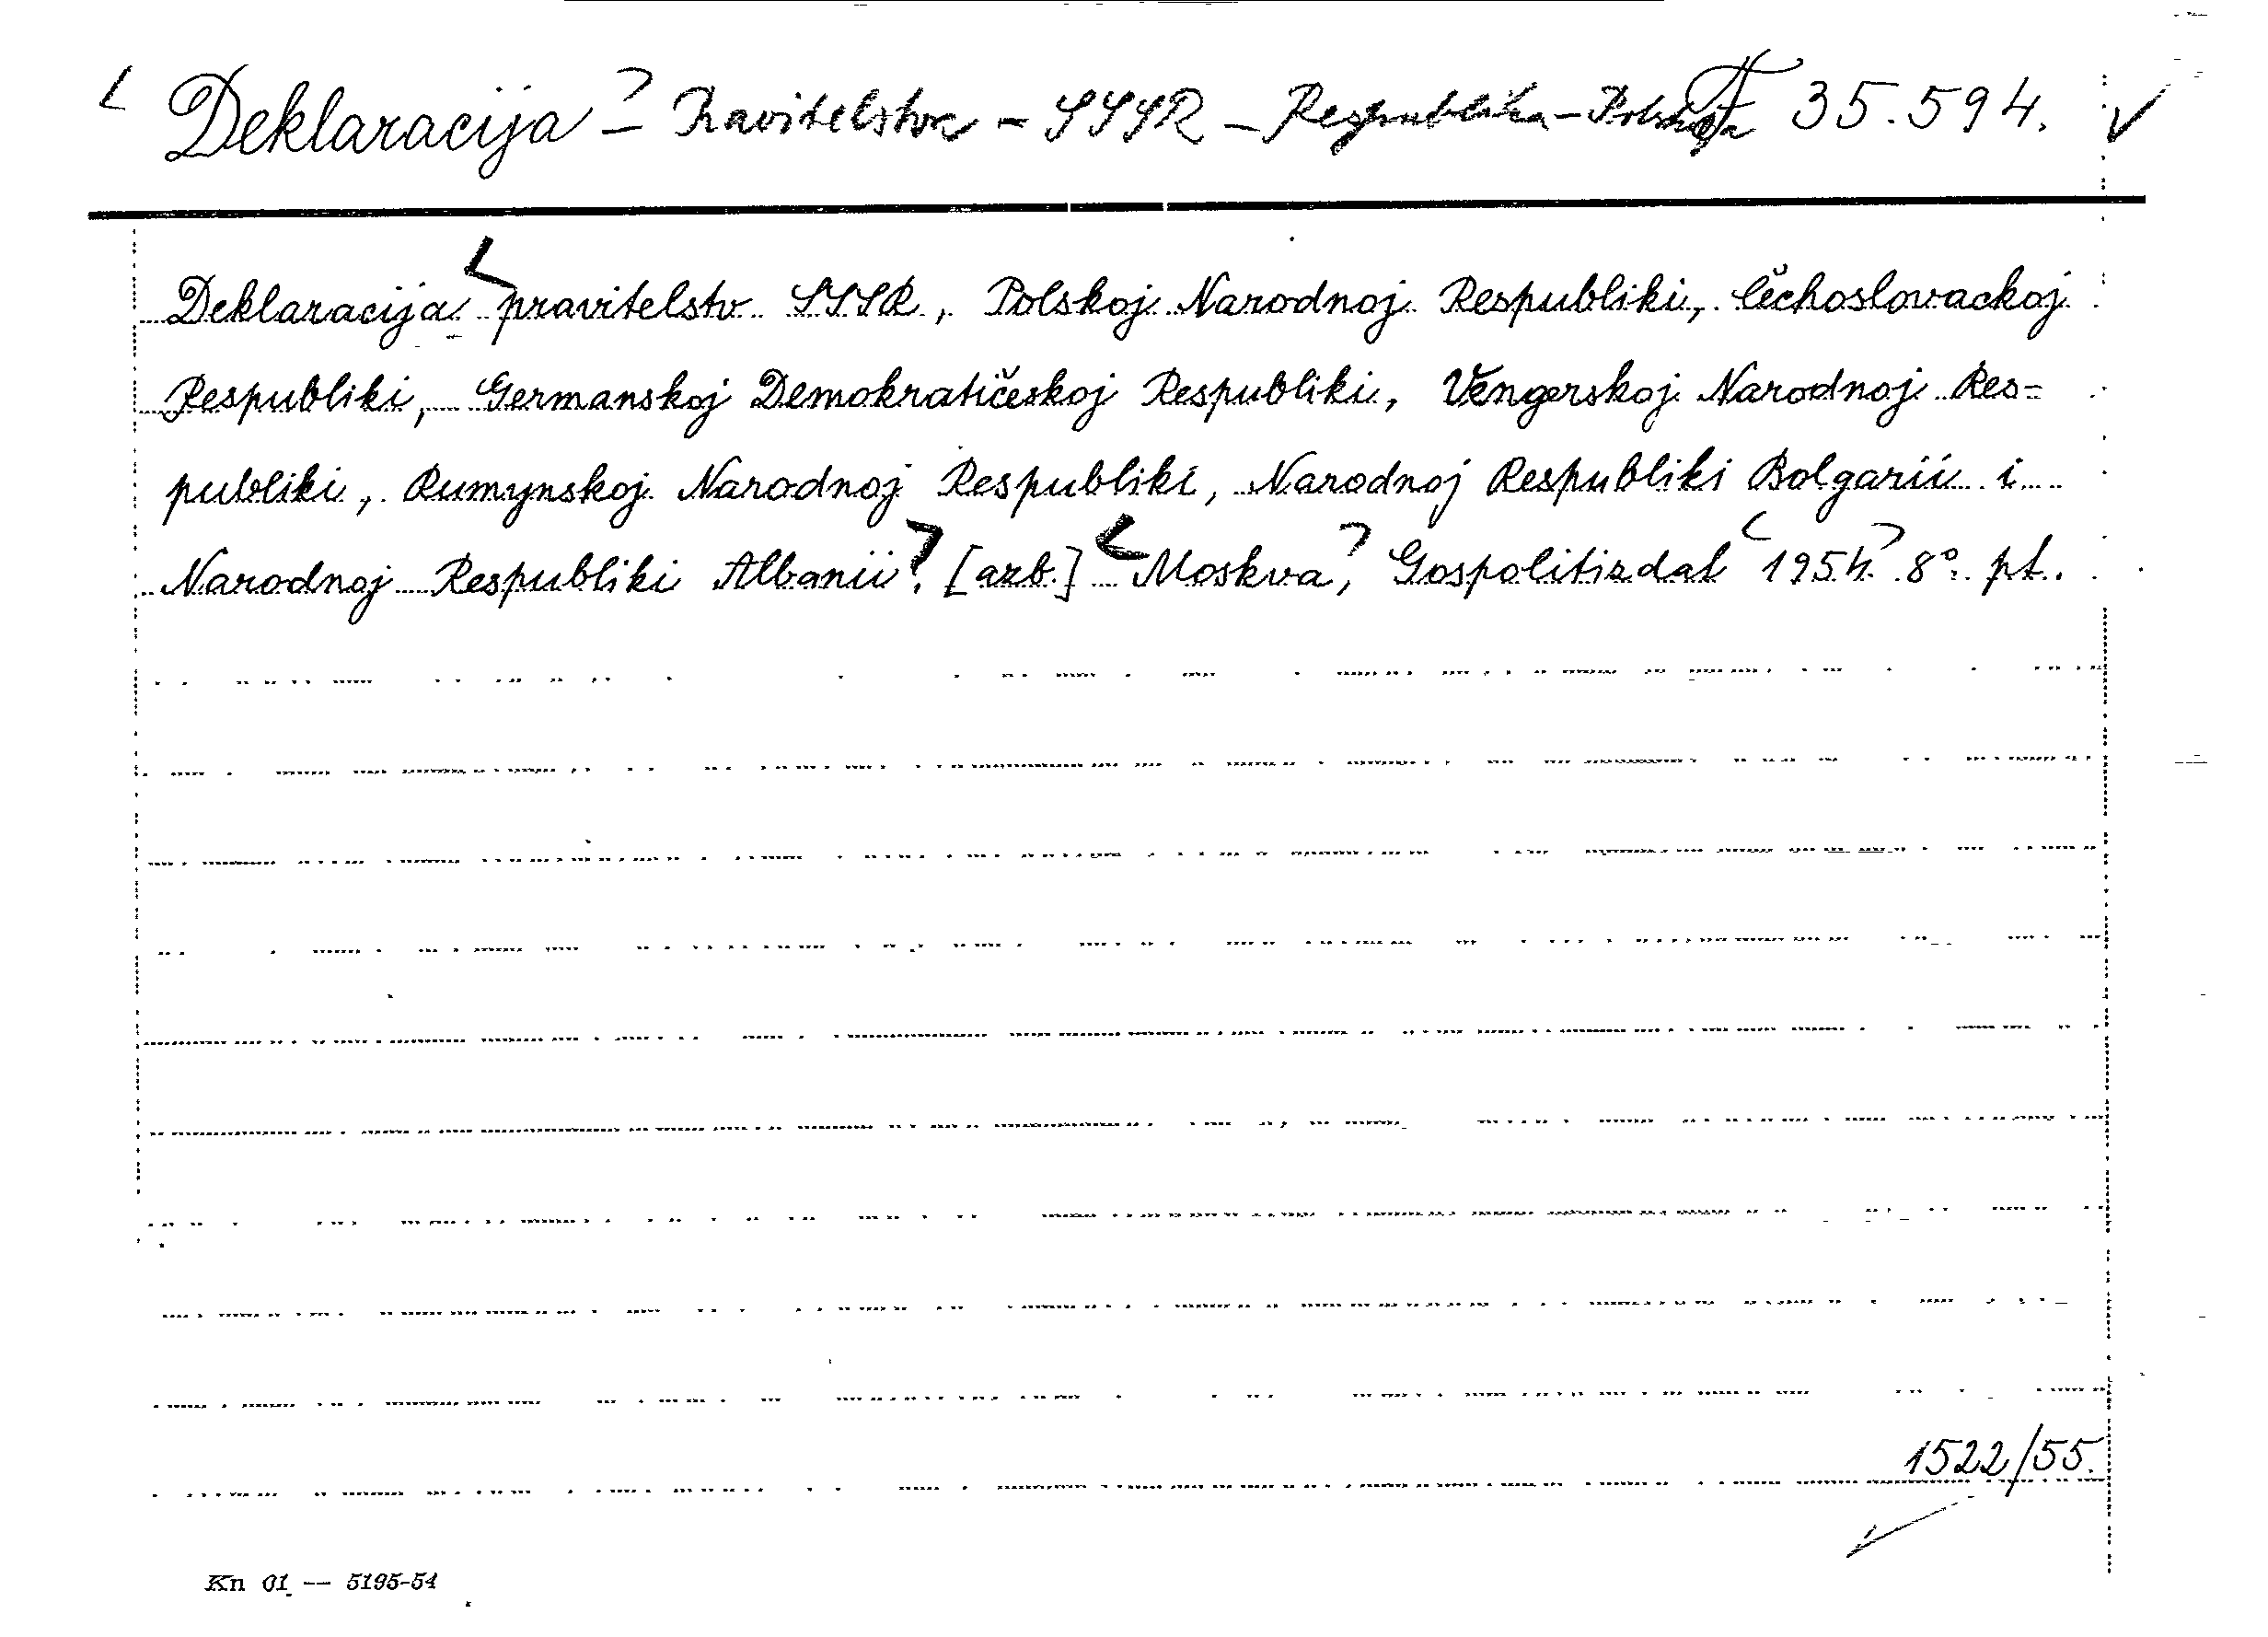 Deklaracija - Pravitelstva - SSSR - Respublika - Polskaja F 35.594.
Deklaracija pravitelstv SSSR, Polskoj Narodnoj Respubliki, Čechoslovackoj
Respubliki, Germanskoj Demokratičeskoj Respubliki, Vengerskoj Narodnoj Res=
publiki, Rumynskoj Narodnoj Respubliki, Narodnoj Respubliki Bolgarii i
Narodnoj Respubliki Albanii. [azb.] Moskva, Gospolitizdat 1954. 8°. pt.
1522/55.
Kn 01 -- 5195-54